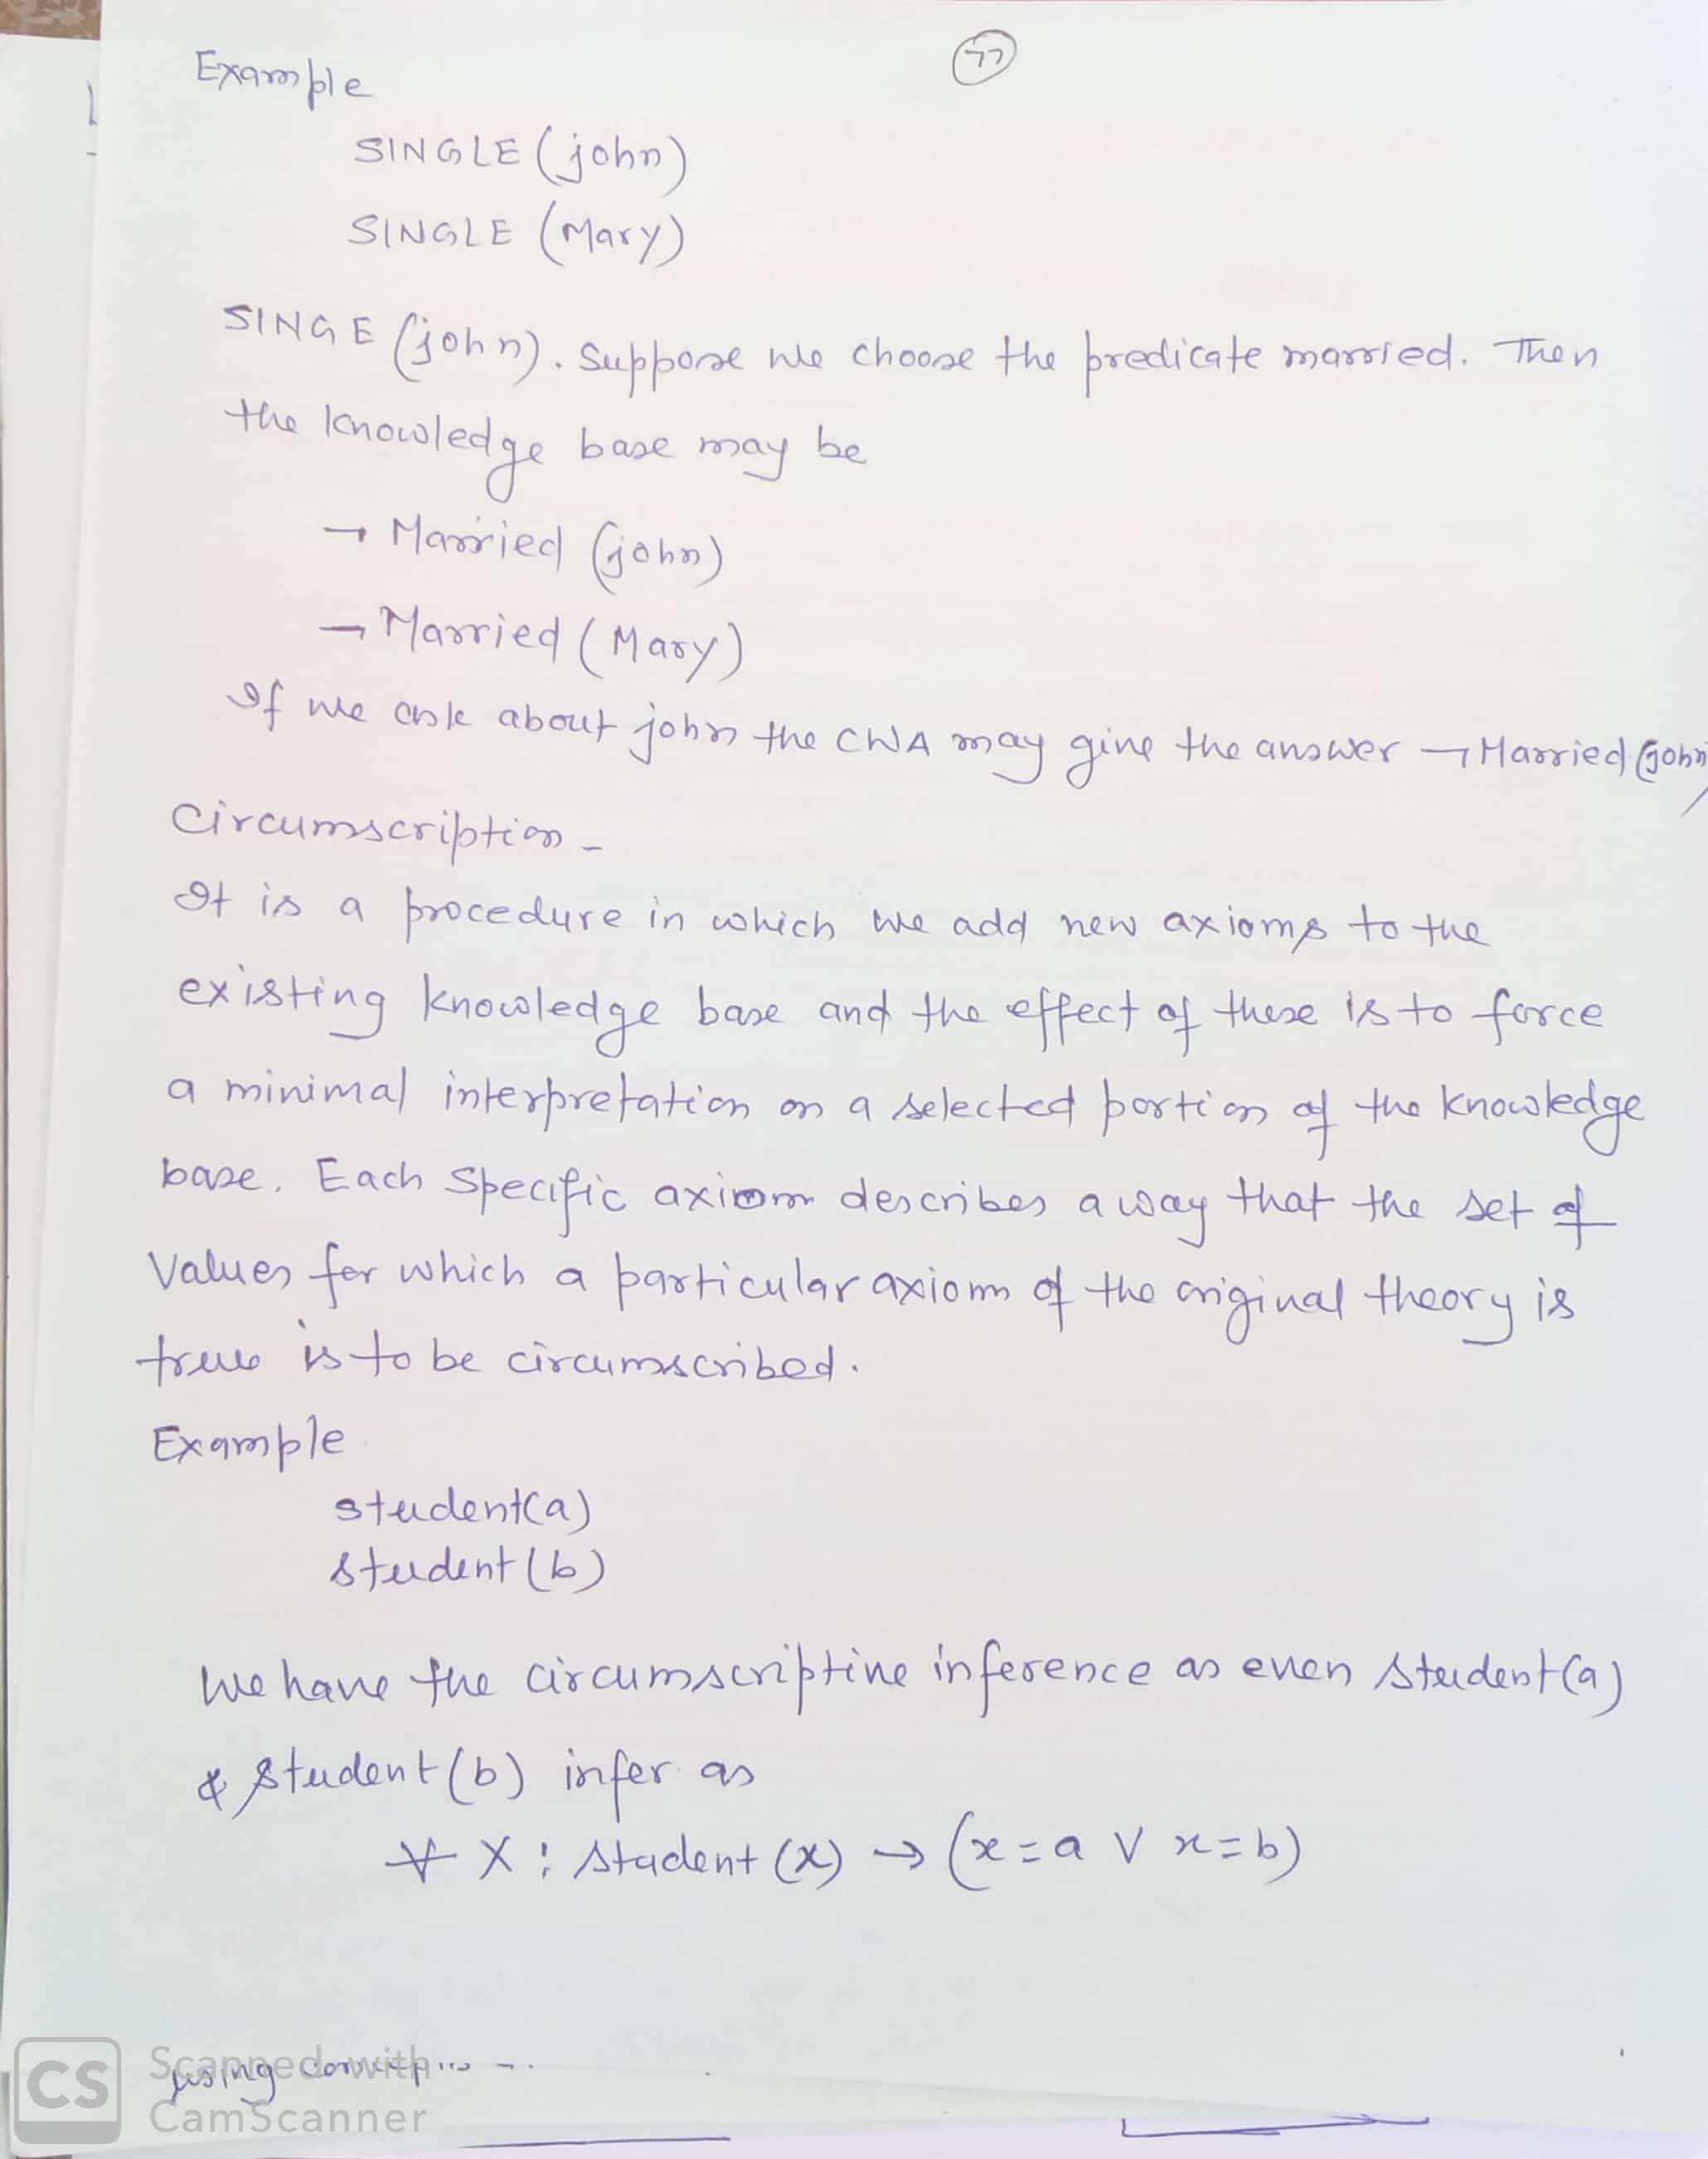 77
Example
SINGLE (john)
SINGLE (Mary)
SINGE (john). Suppose we choose the predicate married. Then
the knowledge base may be
¬ Married (john)
¬ Married (Mary)
If we ask about john the CWA may give the answer ¬ Married (john)
Circumscription -
It is a procedure in which we add new axioms to the
existing knowledge base and the effect of these is to force
a minimal interpretation on a selected portion of the knowledge
base. Each Specific axiom describes a way that the set of
Values for which a particular axiom of the original theory is
true is to be circumscribed.
Example
student(a)
student (b)
We have the circumscriptive inference as even student (a)
& student (b) infer as
∀ X : student (x) → (x = a V x = b)
using
CS
Scanned with
CamScanner